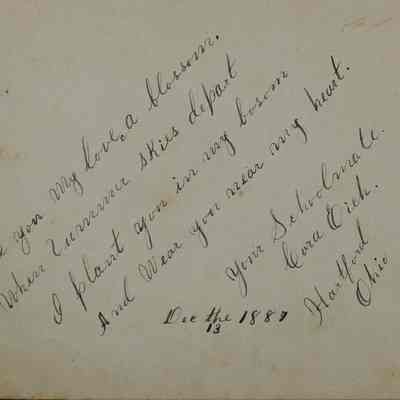 you my love, a blossom.
When Summer skies depart
I plant you in my bosom
And Wear you near my heart.
Your Schoolmate.
Cora Eich.
Hartford
Ohio
Dec the 13 1887